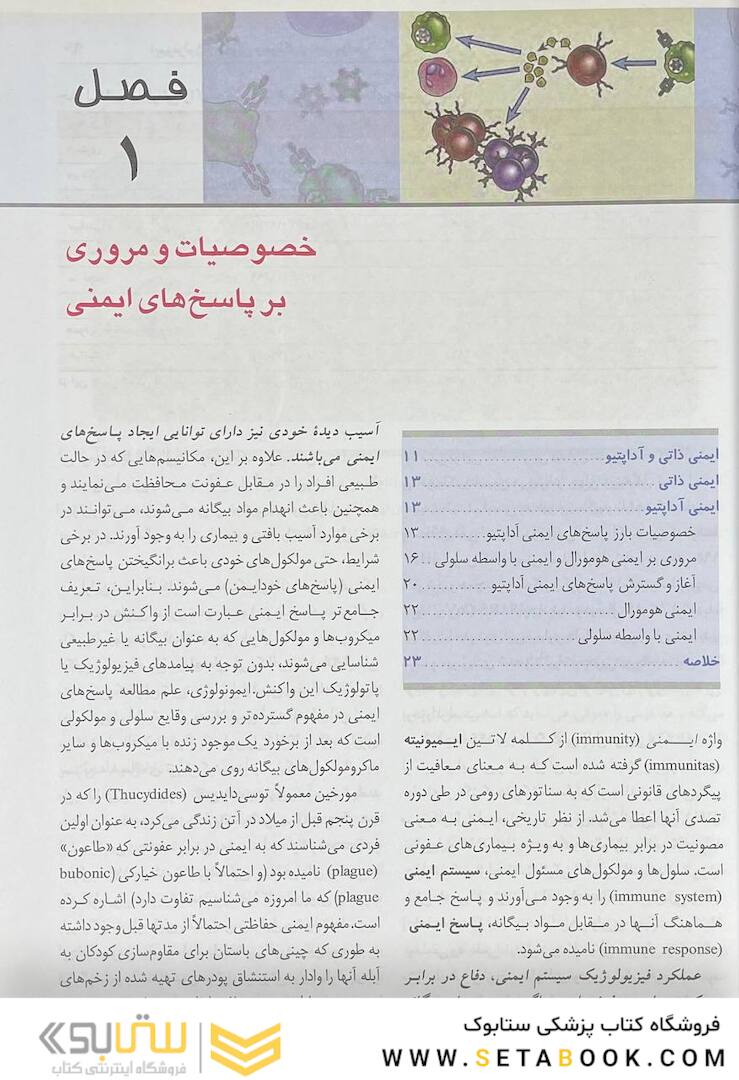 فصل
۱
خصوصیات و مروری
بر پاسخ‌های ایمنی
ایمنی ذاتی و آداپتیو ۱۱
ایمنی ذاتی ۱۳
ایمنی آداپتیو ۱۳
خصوصیات بارز پاسخ‌های ایمنی آداپتیو ۱۳
مروری بر ایمنی هومورال و ایمنی با واسطه سلولی ۱۶
آغاز و گسترش پاسخ‌های ایمنی آداپتیو ۲۰
ایمنی هومورال ۲۲
ایمنی با واسطه سلولی ۲۲
خلاصه ۲۳
واژه ایمنی (immunity) از کلمه لاتین ایمیونیته
(immunitas) گرفته شده است که به معنای معافیت از
پیگردهای قانونی است که به سناتورهای رومی در طی دوره
تصدی آنها اعطا می‌شد. از نظر تاریخی، ایمنی به معنی
مصونیت در برابر بیماری‌ها و به ویژه بیماری‌های عفونی
است. سلول‌ها و مولکول‌های مسئول ایمنی، سیستم ایمنی
(immune system) را به وجود می‌آورند و پاسخ جامع و
هماهنگ آنها در مقابل مواد بیگانه، پاسخ ایمنی
(immune response) نامیده می‌شود.
عملکرد فیزیولوژیک سیستم ایمنی، دفاع در برابر
آسیب دیدهٔ خودی نیز دارای توانایی ایجاد پاسخ‌های
ایمنی می‌باشند. علاوه بر این، مکانیسم‌هایی که در حالت
طبیعی افراد را در مقابل عفونت محافظت می‌نمایند و
همچنین باعث انهدام مواد بیگانه می‌شوند، می‌توانند در
برخی موارد آسیب بافتی و بیماری را به وجود آورند. در برخی
شرایط، حتی مولکول‌های خودی باعث برانگیختن پاسخ‌های
ایمنی (پاسخ‌های خودایمن) می‌شوند. بنابراین، تعریف
جامع‌تر پاسخ ایمنی عبارت است از واکنش در برابر
میکروب‌ها و مولکول‌هایی که به عنوان بیگانه یا غیرطبیعی
شناسایی می‌شوند، بدون توجه به پیامدهای فیزیولوژیک یا
پاتولوژیک این واکنش. ایمونولوژی، علم مطالعه پاسخ‌های
ایمنی در مفهوم گسترده‌تر و بررسی وقایع سلولی و مولکولی
است که بعد از برخورد یک موجود زنده با میکروب‌ها و سایر
ماکرومولکول‌های بیگانه روی می‌دهند.
مورخین معمولاً توسی‌دایدیس (Thucydides) را که در
قرن پنجم قبل از میلاد در آتن زندگی می‌کرد، به عنوان اولین
فردی می‌شناسند که به ایمنی در برابر عفونتی که «طاعون»
(plague) نامیده بود (و احتمالاً با طاعون خیارکی (bubonic
plague) که ما امروزه می‌شناسیم تفاوت دارد) اشاره کرده
است. مفهوم ایمنی حفاظتی احتمالاً از مدتها قبل وجود داشته
به طوری که چینی‌های باستان برای مقاوم‌سازی کودکان به
آبله آنها را وادار به استنشاق پودرهای تهیه شده از زخم‌های
فروشگاه کتاب پزشکی ستابوک
WWW.SETABOOK.COM
ستابوک
فروشگاه اینترنتی کتاب